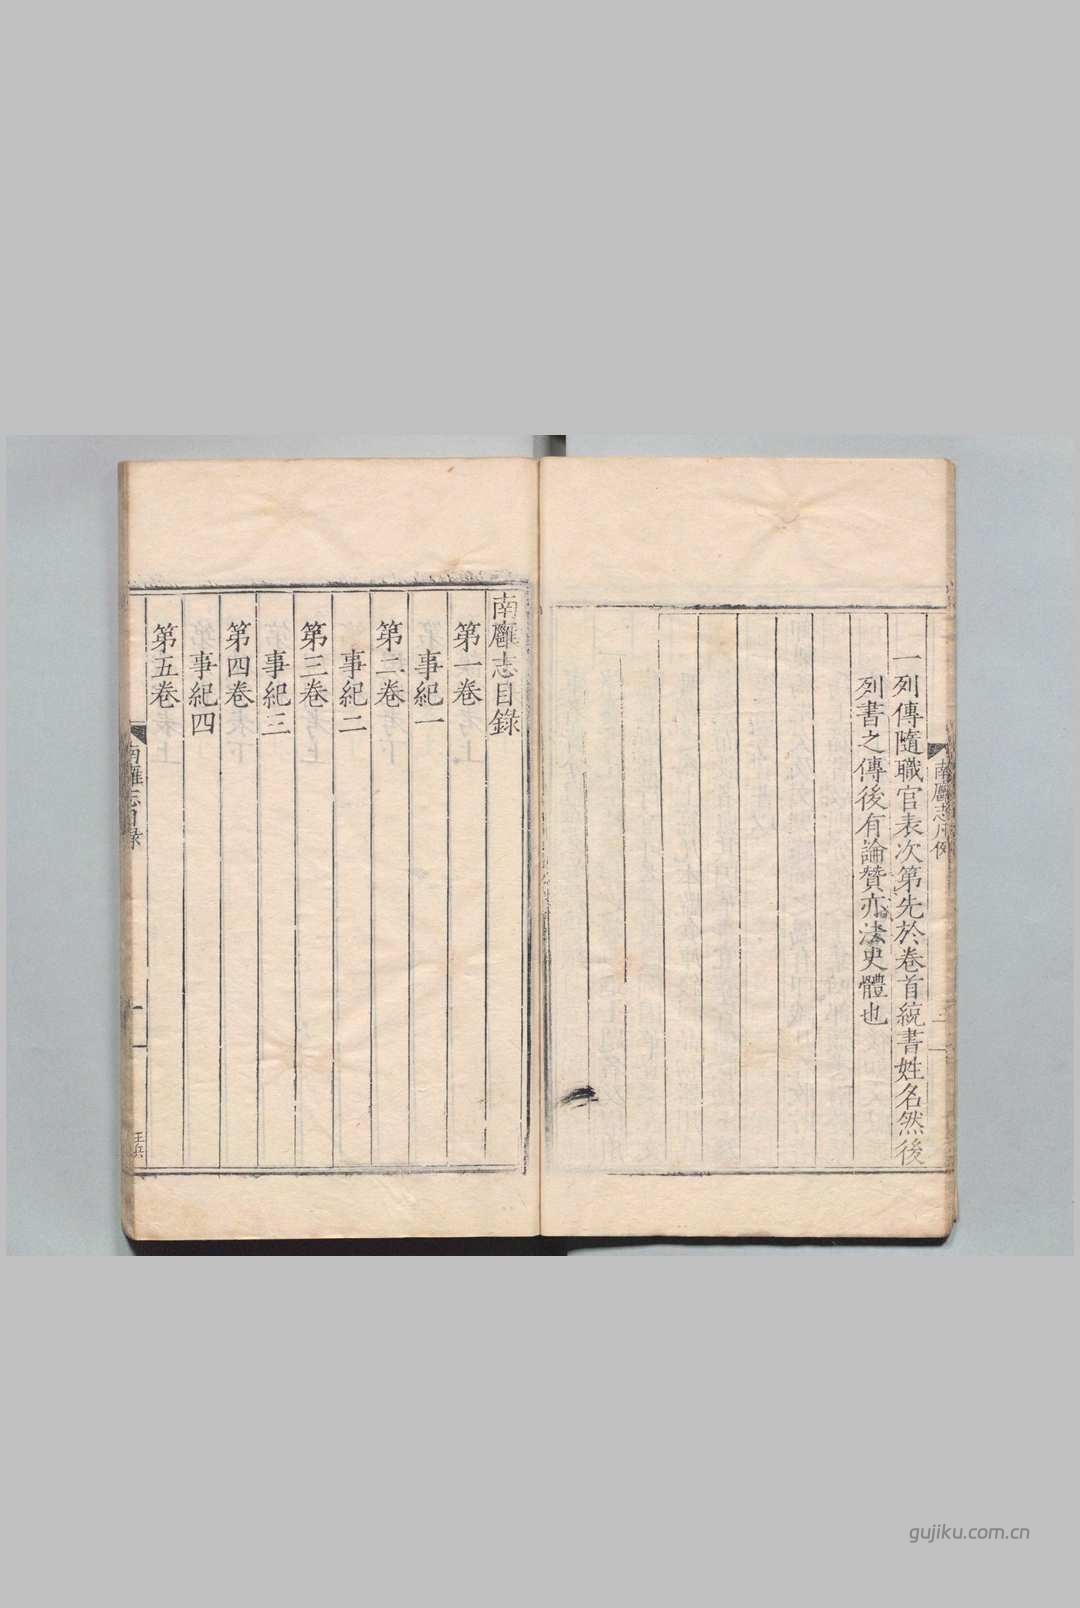 一列傳隨職官表次第先於卷首統書姓名然後
列書之傳後有論贊亦法史體也
南廱志凡例
二
南廱志目錄
第一卷
事紀一
第二卷
事紀二
第三卷
事紀三
第四卷
事紀四
第五卷
南廱志目錄
一
gujiku.com.cn